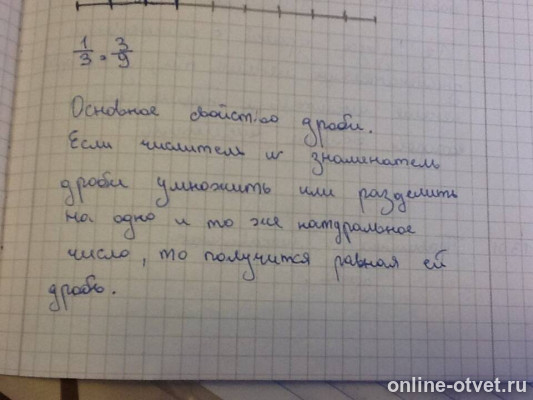 1/3 = 3/9
Основное свойство дроби.
Если числитель и знаминатель
дроби умножить или разделить
на одно и то же натуральное
число, то получится равная ей
дробь.
online-otvet.ru